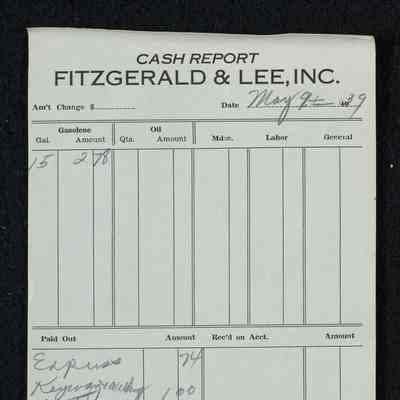 CASH REPORT
FITZGERALD & LEE, INC.
Am't Change $ Date May 9th 39
Gasolene Oil
Gal. Amount Qts. Amount Mdse. Labor General
15 2 78
Paid Out Amount Rec'd on Acct. Amount
Express 74
1 00